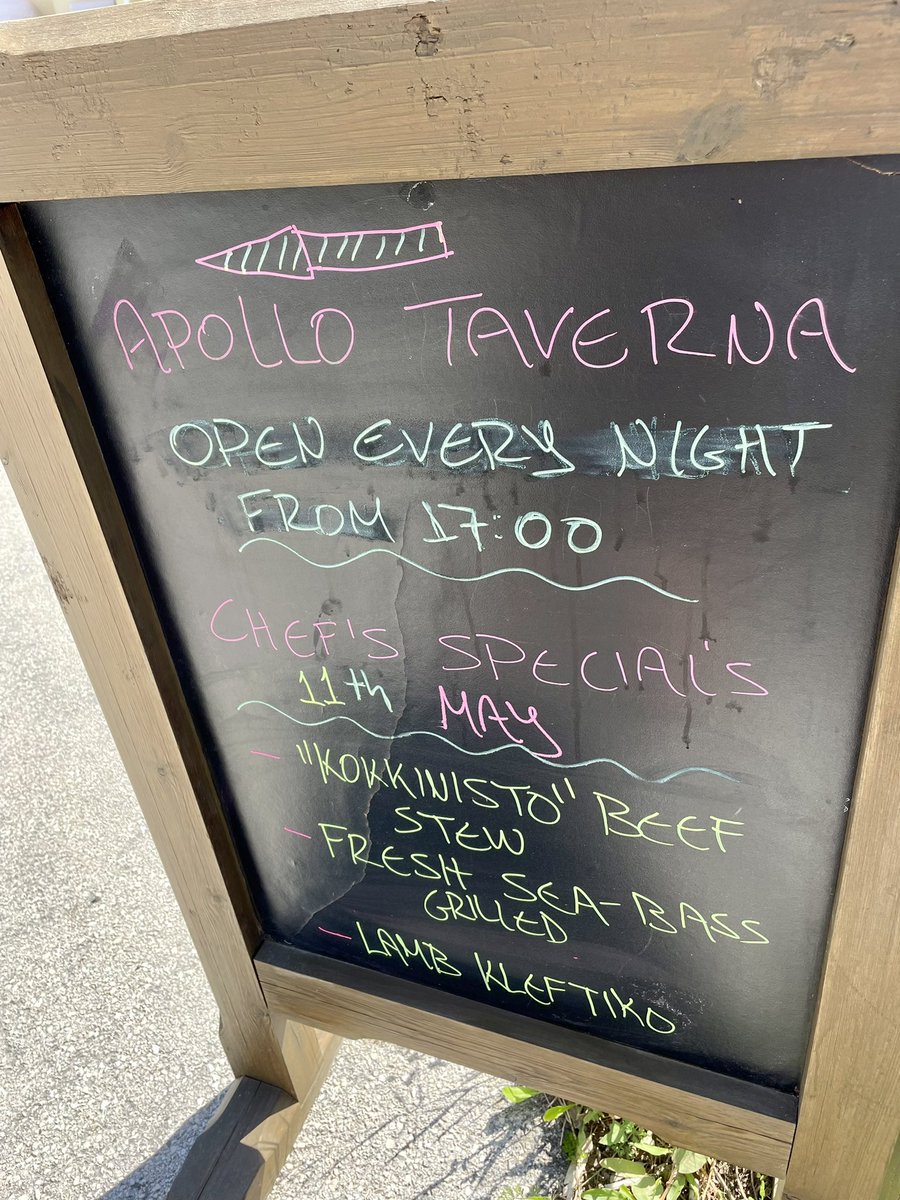 APOLLO TAVERNA
OPEN EVERY NIGHT
FROM 17:00
CHEF'S SPECIAL'S
11th MAY
- "KOKKINISTO" BEEF
STEW
- FRESH SEA-BASS
GRILLED
- LAMB KLEFTIKO